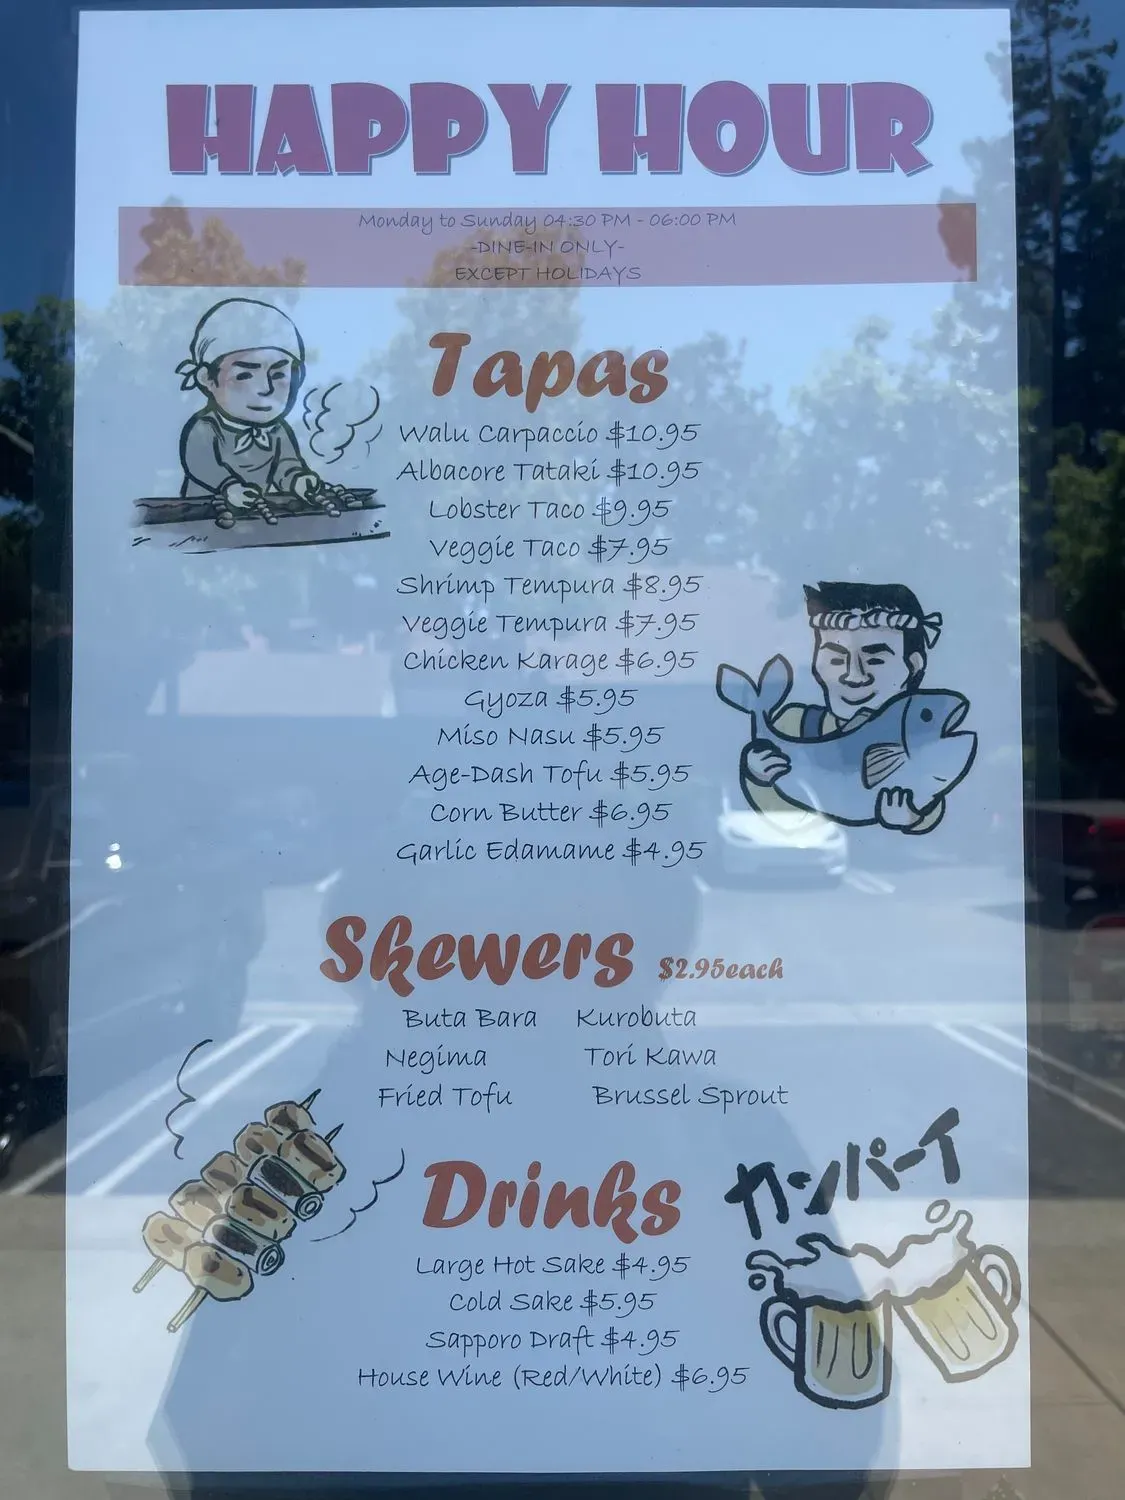 HAPPY HOUR
Monday to Sunday 04:30 PM - 06:00 PM
-DINE-IN ONLY-
EXCEPT HOLIDAYS
Tapas
Walu Carpaccio $10.95
Albacore Tataki $10.95
Lobster Taco $9.95
Veggie Taco $7.95
Shrimp Tempura $8.95
Veggie Tempura $7.95
Chicken Karage $6.95
Gyoza $5.95
Miso Nasu $5.95
Age-Dash Tofu $5.95
Corn Butter $6.95
Garlic Edamame $4.95
Skewers $2.95each
Buta Bara Kurobuta
Negima Tori Kawa
Fried Tofu Brussel Sprout
カンパーイ
Drinks
Large Hot Sake $4.95
Cold Sake $5.95
Sapporo Draft $4.95
House Wine (Red/White) $6.95